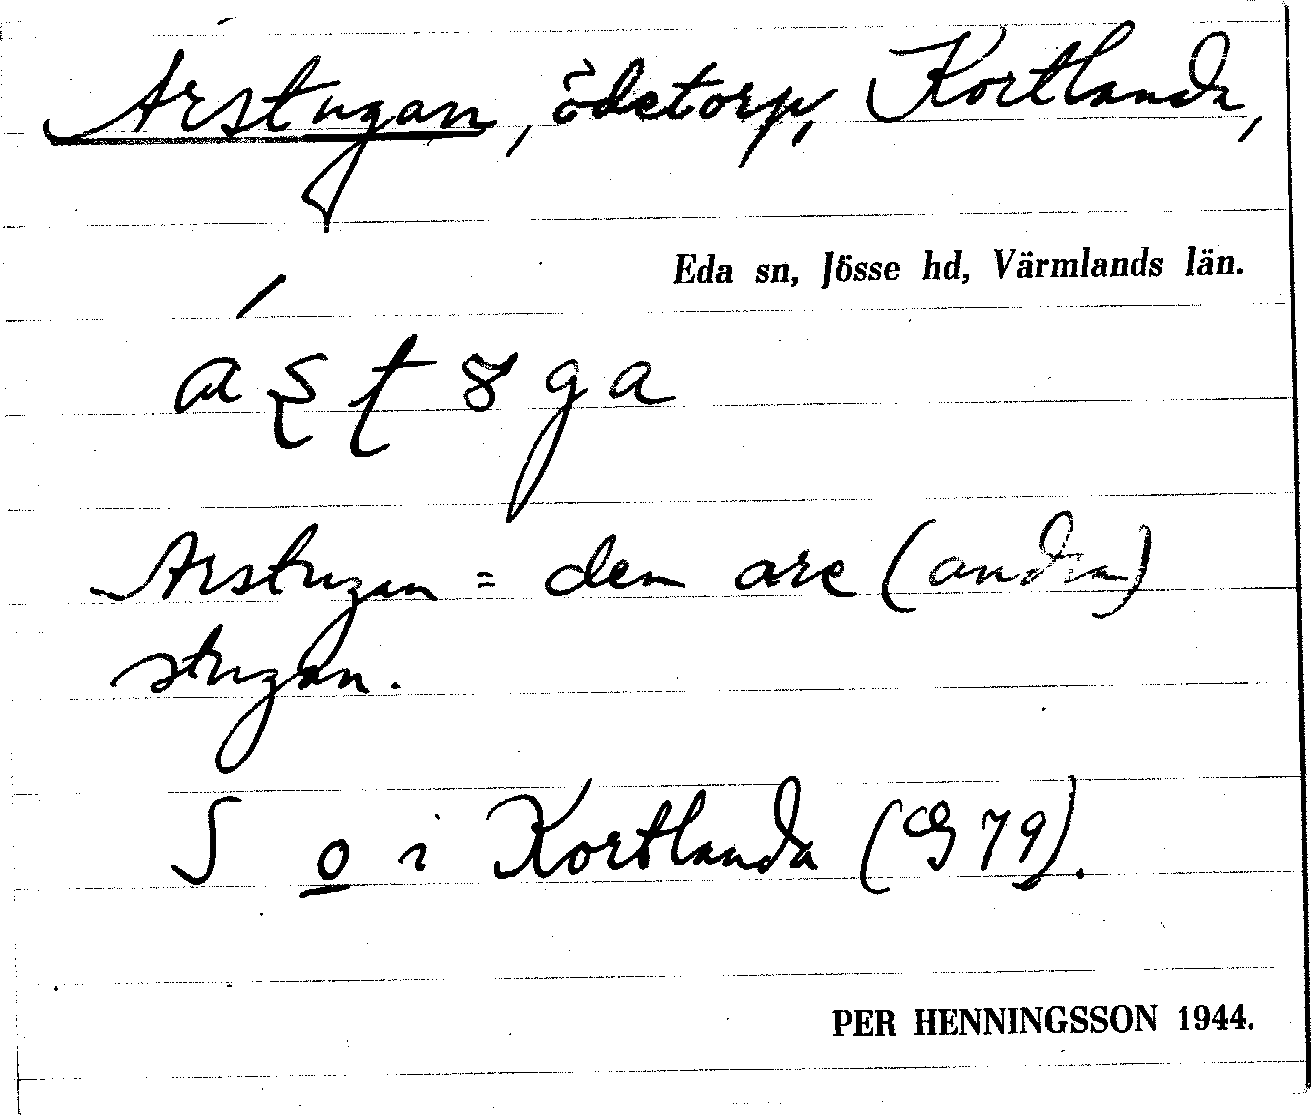 Arstugan, ödetorp, Kortlanda,
Eda sn, Jösse hd, Värmlands län.
Arstugan = den are (andra)
stugan.
S o i Kortlanda (G 79).
PER HENNINGSSON 1944.